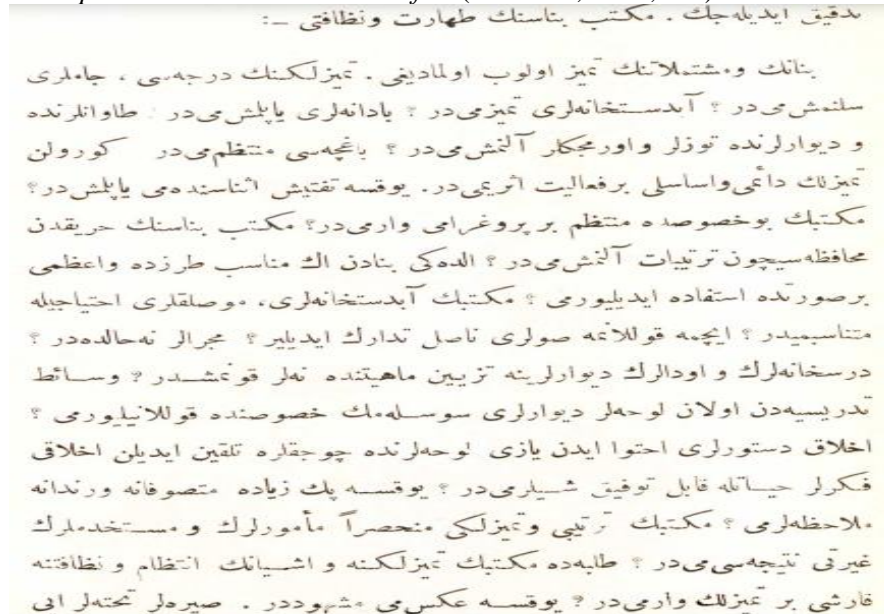 تدقیق ایدیله‌جك . مكتب بناسنك طهارت ونظافتی :ـ
بنانك ومشتملاتنك تمیز اولوب اولمادیغی . تمیزلكنك درجه‌سی ، جاملری
سلنمش می‌در ؟ آبدستخانه‌لری تمیزمی‌در ؟ بادانه‌لری یاپلمش می‌در . طاوانلرنده
و دیوارلرنده توزلر واورمجكلر آلنمش می‌در ؟ باغچه‌سی منتظم می‌در كورولن
تمیزلك دائمی واساسلی برفعالیت اثریمی‌در. یوقسه تفتیش اثناسنده‌می یاپلمش در؟
مكتبك بوخصوصده منتظم بر پروغرامی وارمی‌در؟ مكتب بناسنك حریقدن
محافظه‌سیچون ترتیبات آلنمش می‌در ؟ الده‌كی بنادن اك مناسب طرزده واعظمی
برصورتده استفاده ایدیلیورمی ؟ مكتبك آبدستخانه‌لری، موصلقلری احتیاجیله
متناسبمیدر ؟ ایچمه قوللانمه صولری ناصل تدارك ایدیلیر ؟ مجرالر نه‌حالده‌در ؟
درسخانه‌لرك و اودالرك دیوارلرینه تزیین ماهیتنده نه‌لر قونمشدر ؟ وسائط
تدریسیه‌دن اولان لوحه‌لر دیوارلری سوسله‌مك خصوصنده قوللانیلیورمی ؟
اخلاق دستورلری احتوا ایدن یازی لوحه‌لرنده چوجقلره تلقین ایدیلن اخلاقی
فكرلر حیاتله قابل توفیق شیلرمی‌در ؟ یوقسه پك زیاده متصوفانه ورندانه
ملاحظه‌لرمی ؟ مكتبك ترتیبی وتمیزلكی منحصراً مأمورلرك و مستخدملرك
غیرتی نتیجه‌سی می‌در ؟ طلبه‌ده مكتبك تمیزلكنه و اشیانك انتظام و نظافتنه
قارشی بر تمیزلك وارمی‌در ؟ یوقسه عكس می مشهوددر . صیره‌لر تخته‌لر ایی